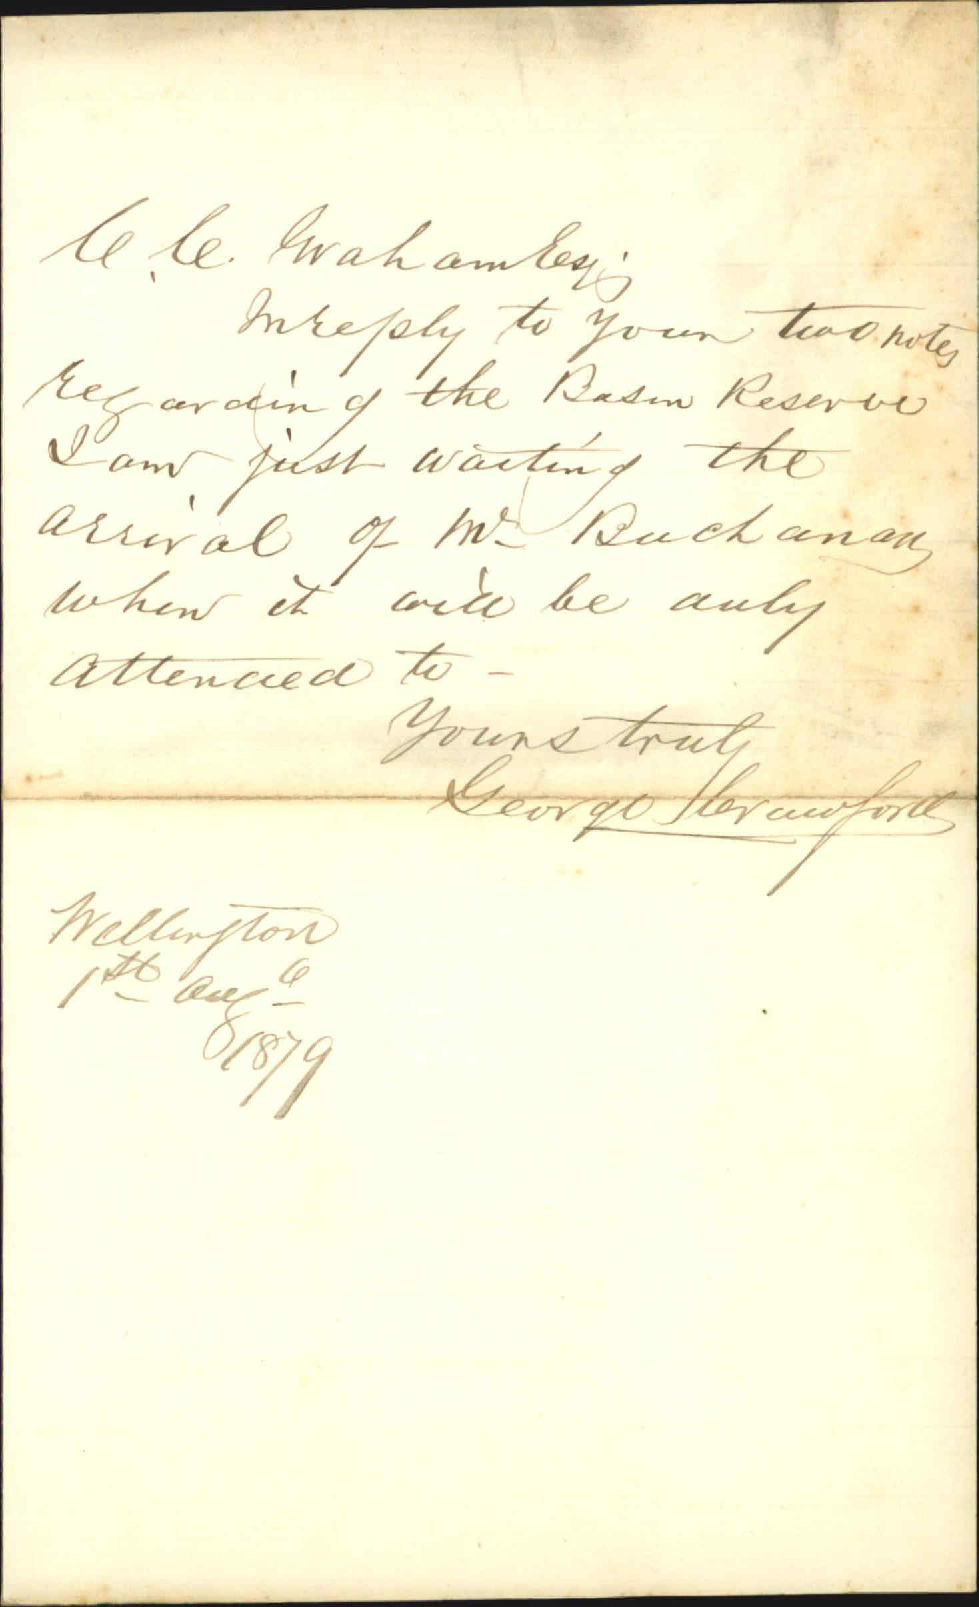 C. C. Graham Esq;
In reply to your two notes
regarding the Basin Reserve
I am just waiting the
arrival of Mr Buchanan
when it will be duly
attended to -
Yours truly
George Crawford
Wellington
1st Aug
1879